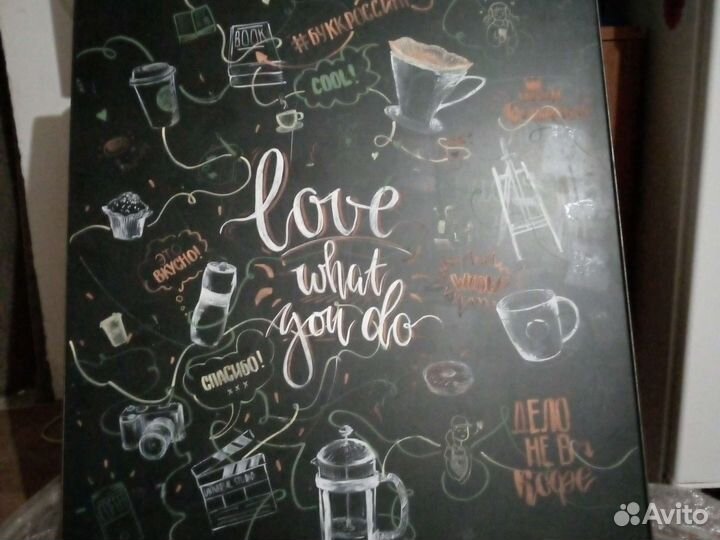 #БУККРОССИНГ
COOL!
love
what
you do
ЭТО
ВКУСНО!
WOW!
СПАСИБО!
x x x
ДЕЛО
НЕ В
КОФЕ
Avito